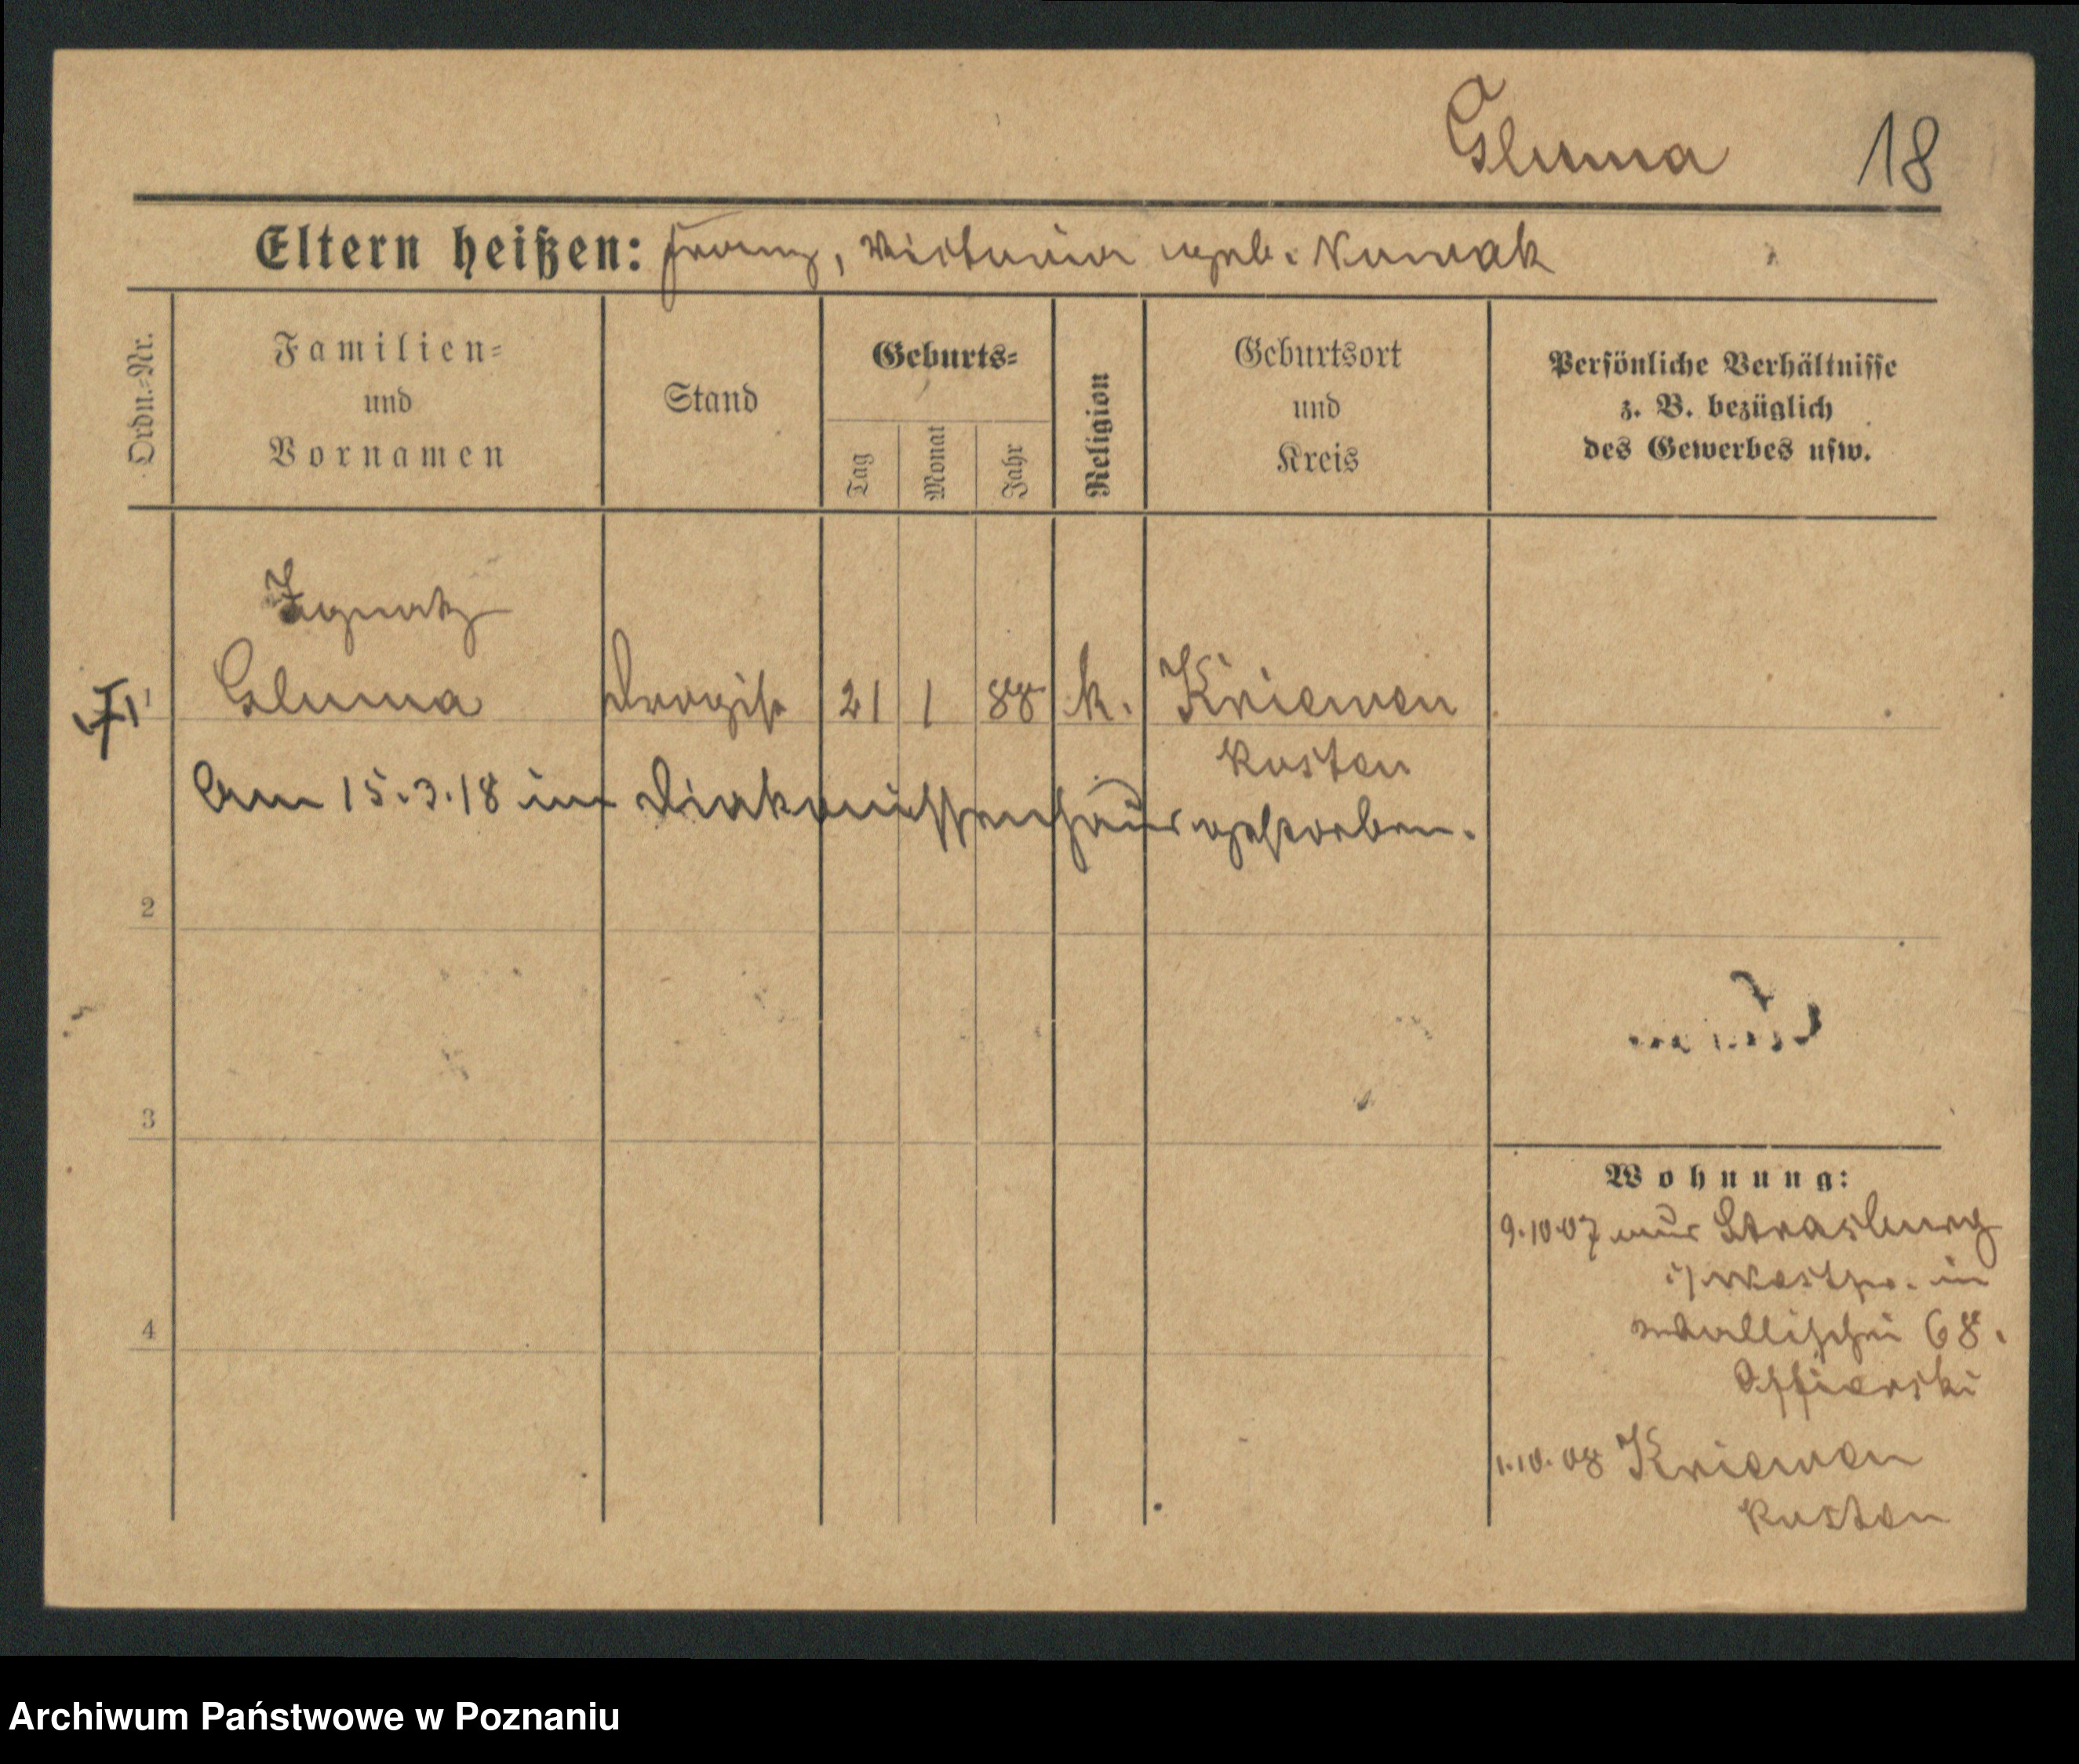 Gluma 18
Eltern heißen: Franz, Victoria geb. Nowak
Ordn.-Nr.
Familien-
und
Vornamen
Stand
Geburts-
Tag
Monat
Jahr
Religion
Geburtsort
und
Kreis
Persönliche Verhältnisse
z. B. bezüglich
des Gewerbes usw.
Ignatz
1 Gluma Drogist 21 1 88 k. Kriewen
Kosten
Am 15.3.18 im Diakonissenhaus gestorben.
2
3
4
Wohnung:
9.10.07 aus Strasburg
i/Westpr. in
Wallischei 68.
1.10.08 Kriewen
Kosten
Archiwum Państwowe w Poznaniu